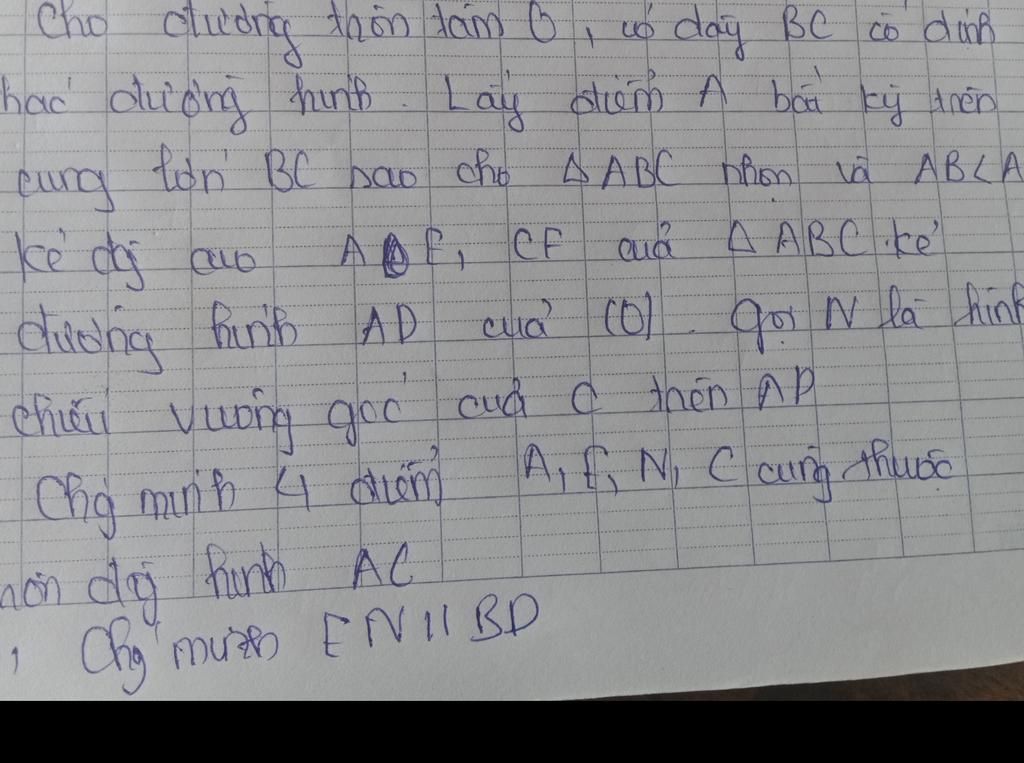 Cho đường tròn tâm O, có dây BC cố định
khác đường kính. Lấy điểm A bất kỳ trên
cung lớn BC sao cho Δ ABC nhọn và AB<A
kẻ đg cao AE, CF của Δ ABC. kẻ
đường kính AD của (O). gọi N là hình
chiếu vuông góc của C trên AD
Chg minh 4 điểm A, E, N, C cùng thuộc
tròn đg kính AC
, Chg minh EN // BD